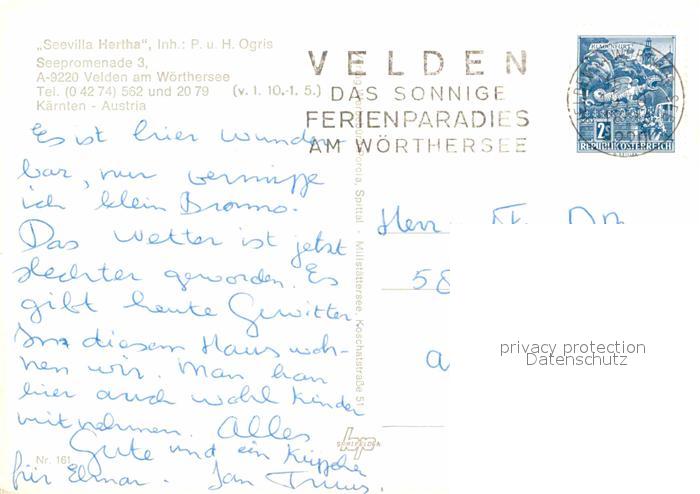 „Seevilla Hertha“, Inh.: P. u. H. Ogris
Seepromenade 3,
A-9220 Velden am Wörthersee
Tel. (0 42 74) 562 und 20 79 (v. 1. 10.-1. 5.)
Kärnten - Austria
VELDEN
DAS SONNIGE
FERIENPARADIES
AM WÖRTHERSEE
KLAGENFURT
2S
REPUBLIK ÖSTERREICH
Es ist hier wunder-
bar, nur vermisse
ich klein Bronno.
Das Wetter ist jetzt
slechter geworden. Es
gibt heute Gewitter
In diesem Haus woh-
nen wir. Man kan
hier auch wohl Kinder
mitnehmen. Alles
Gute und ein Küsschen
für Elmar. Jan
Nr. 161
Spittal - Millstättersee, Koschatstraße 51
Herr
58
a
privacy protection
Datenschutz